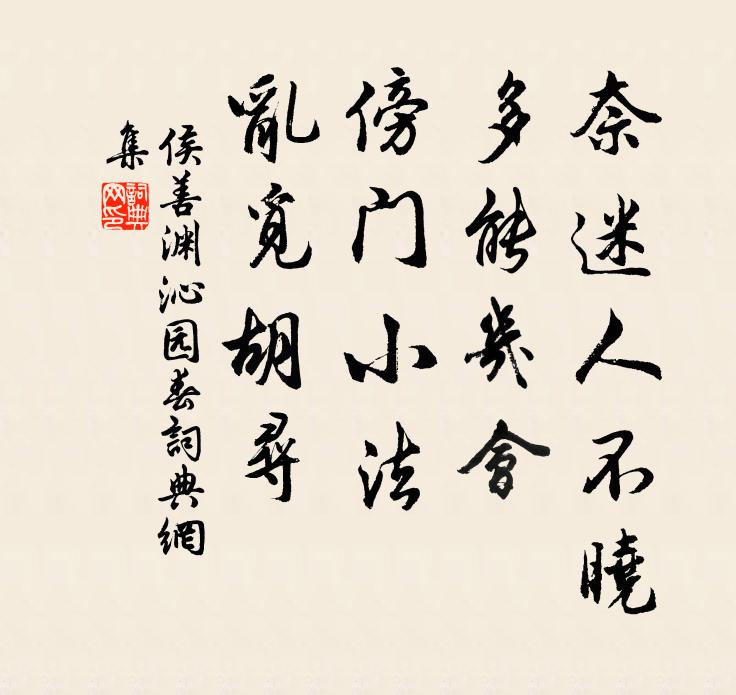 奈迷人不曉
多能幾會
傍門小法
亂覓胡尋
侯善渊沁园春詞典網
集
詞典
网印